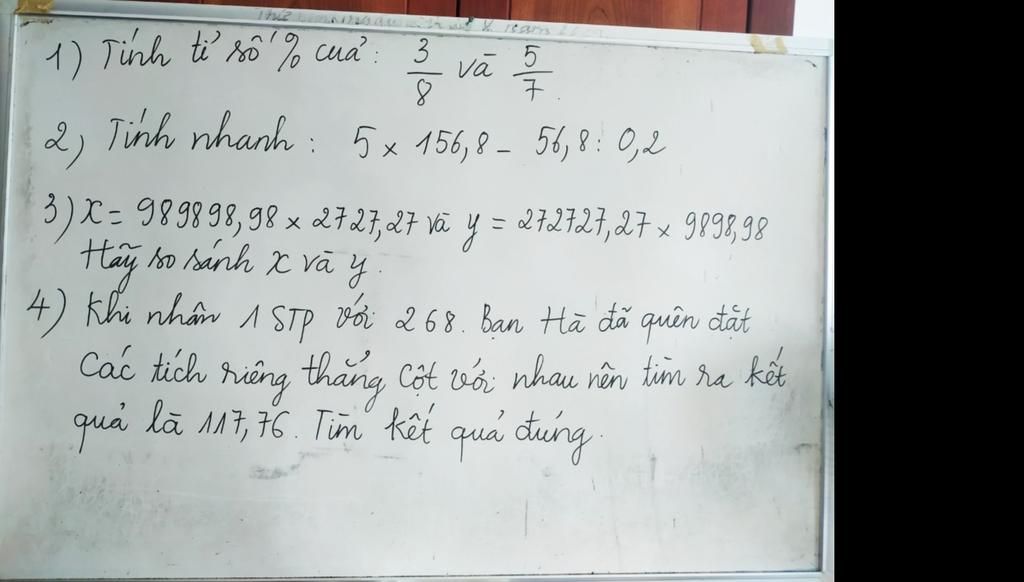 1) Tính tỉ số % của: 3/8 và 5/7.
2) Tính nhanh: 5 × 156,8 - 56,8 : 0,2
3) x = 989898,98 × 2727,27 và y = 272727,27 × 9898,98
Hãy so sánh x và y.
4) Khi nhân 1 STP với 268. Bạn Hà đã quên đặt
Các tích riêng thẳng cột với nhau nên tìm ra kết
quả là 117,76. Tìm kết quả đúng.